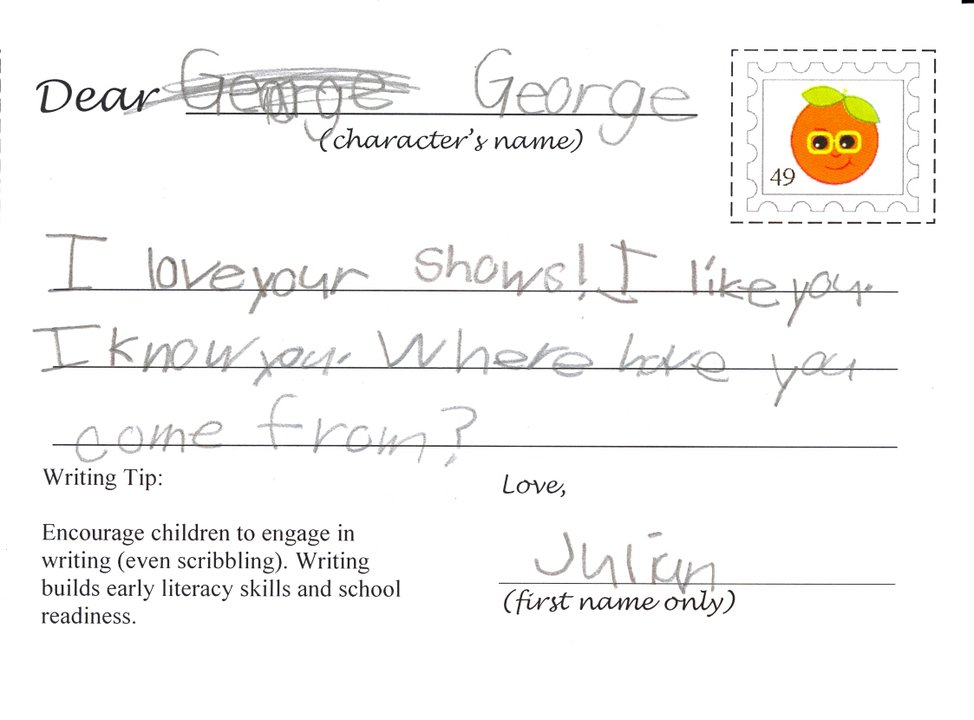 Dear George George
(character's name)
49
I love your shows! I like you.
I know you. Where have you
come from?
Writing Tip:
Love,
Encourage children to engage in
writing (even scribbling). Writing
builds early literacy skills and school
readiness.
Julian
(first name only)